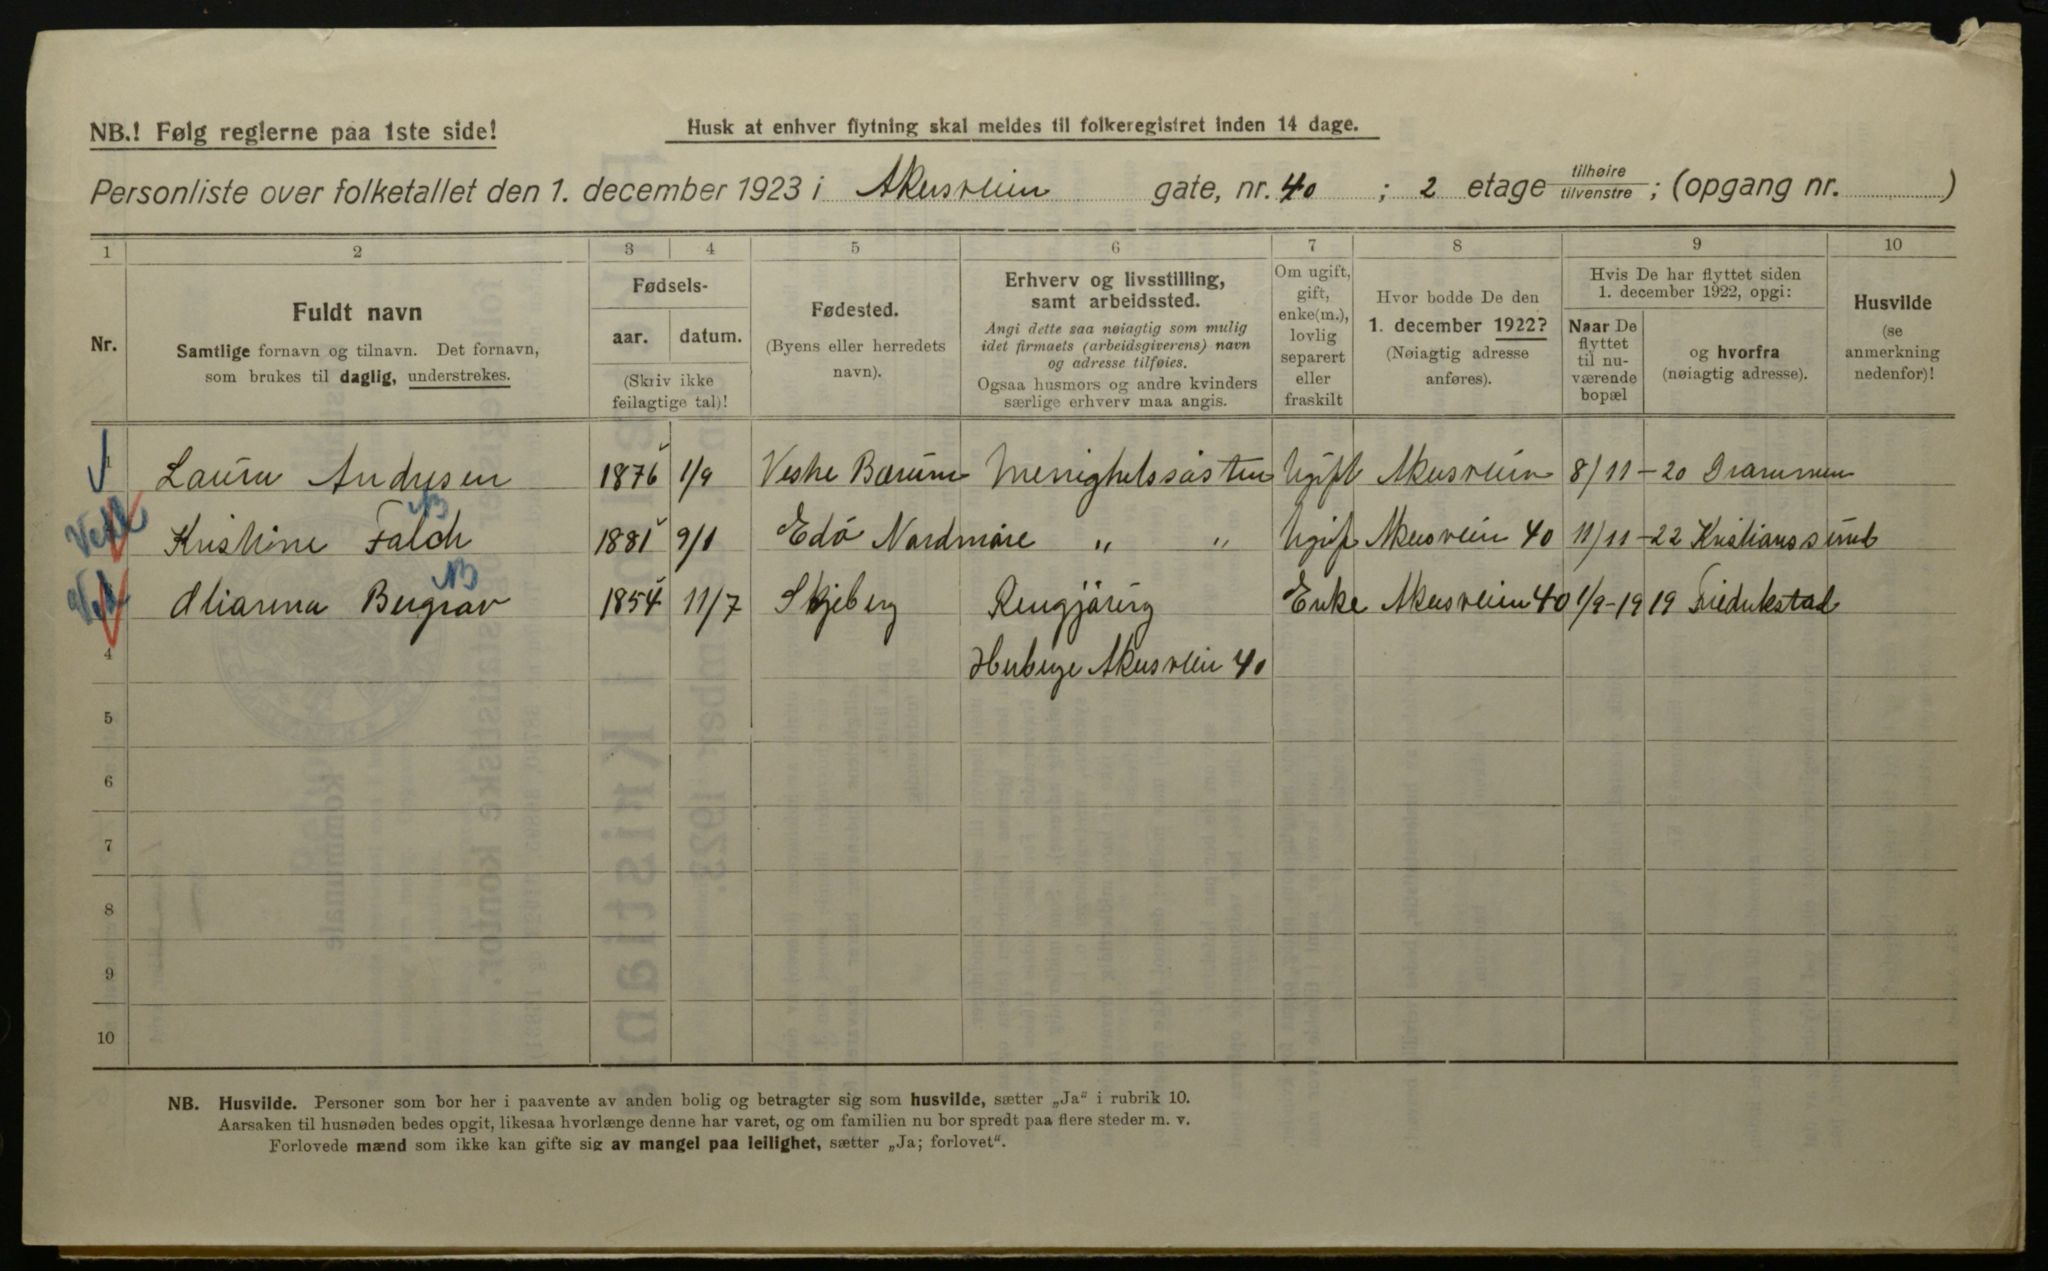 NB.! Følg reglerne paa 1ste side!
Husk at enhver flytning skal meldes til folkeregistret inden 14 dage.
Personliste over folketallet den 1. december 1923 i Akersveien gate, nr. 40 ; 2 etage tilhøire tilvenstre ; (opgang nr. )
1 2 3 4 5 6 7 8 9 10
Nr.
Fuldt navn
Samtlige fornavn og tilnavn. Det fornavn,
som brukes til daglig, understrekes.
Fødsels-
aar. datum.
(Skriv ikke
feilagtige tal)!
Fødested.
(Byens eller herredets
navn).
Erhverv og livsstilling,
samt arbeidssted.
Angi dette saa nøiagtig som mulig
idet firmaets (arbeidsgiverens) navn
og adresse tilføies.
Ogsaa husmors og andre kvinders
særlige erhverv maa angis.
Om ugift,
gift,
enke(m.),
lovlig
separert
eller
fraskilt
Hvor bodde De den
1. december 1922?
(Nøiagtig adresse
anføres).
Hvis De har flyttet siden
1. december 1922, opgi:
Naar De
flyttet
til nu-
værende
bopæl
og hvorfra
(nøiagtig adresse).
Husvilde
(se
anmerkning
nedenfor)!
1 Laura Andersen 1876 1/9 Vestre Bærum Menighetssøster Ugift Akersveien 8/11-20 Drammen
Kristine Falch NB 1881 9/1 Edö Nordmøre " " Ugift Akersveien 40 11/11-22 Kristianssund
Mariana Bergrav NB 1854 11/7 Skjeberg Rengjöring Enke Akersveien 40 1/9-1919 Fredrikstad
4 Herberge Akersveien 40
5
6
7
8
9
10
NB. Husvilde. Personer som bor her i paavente av anden bolig og betragter sig som husvilde, sætter „Ja“ i rubrik 10.
Aarsaken til husnøden bedes opgit, likesaa hvorlænge denne har varet, og om familien nu bor spredt paa flere steder m. v.
Forlovede mænd som ikke kan gifte sig av mangel paa leilighet, sætter „Ja; forlovet“.